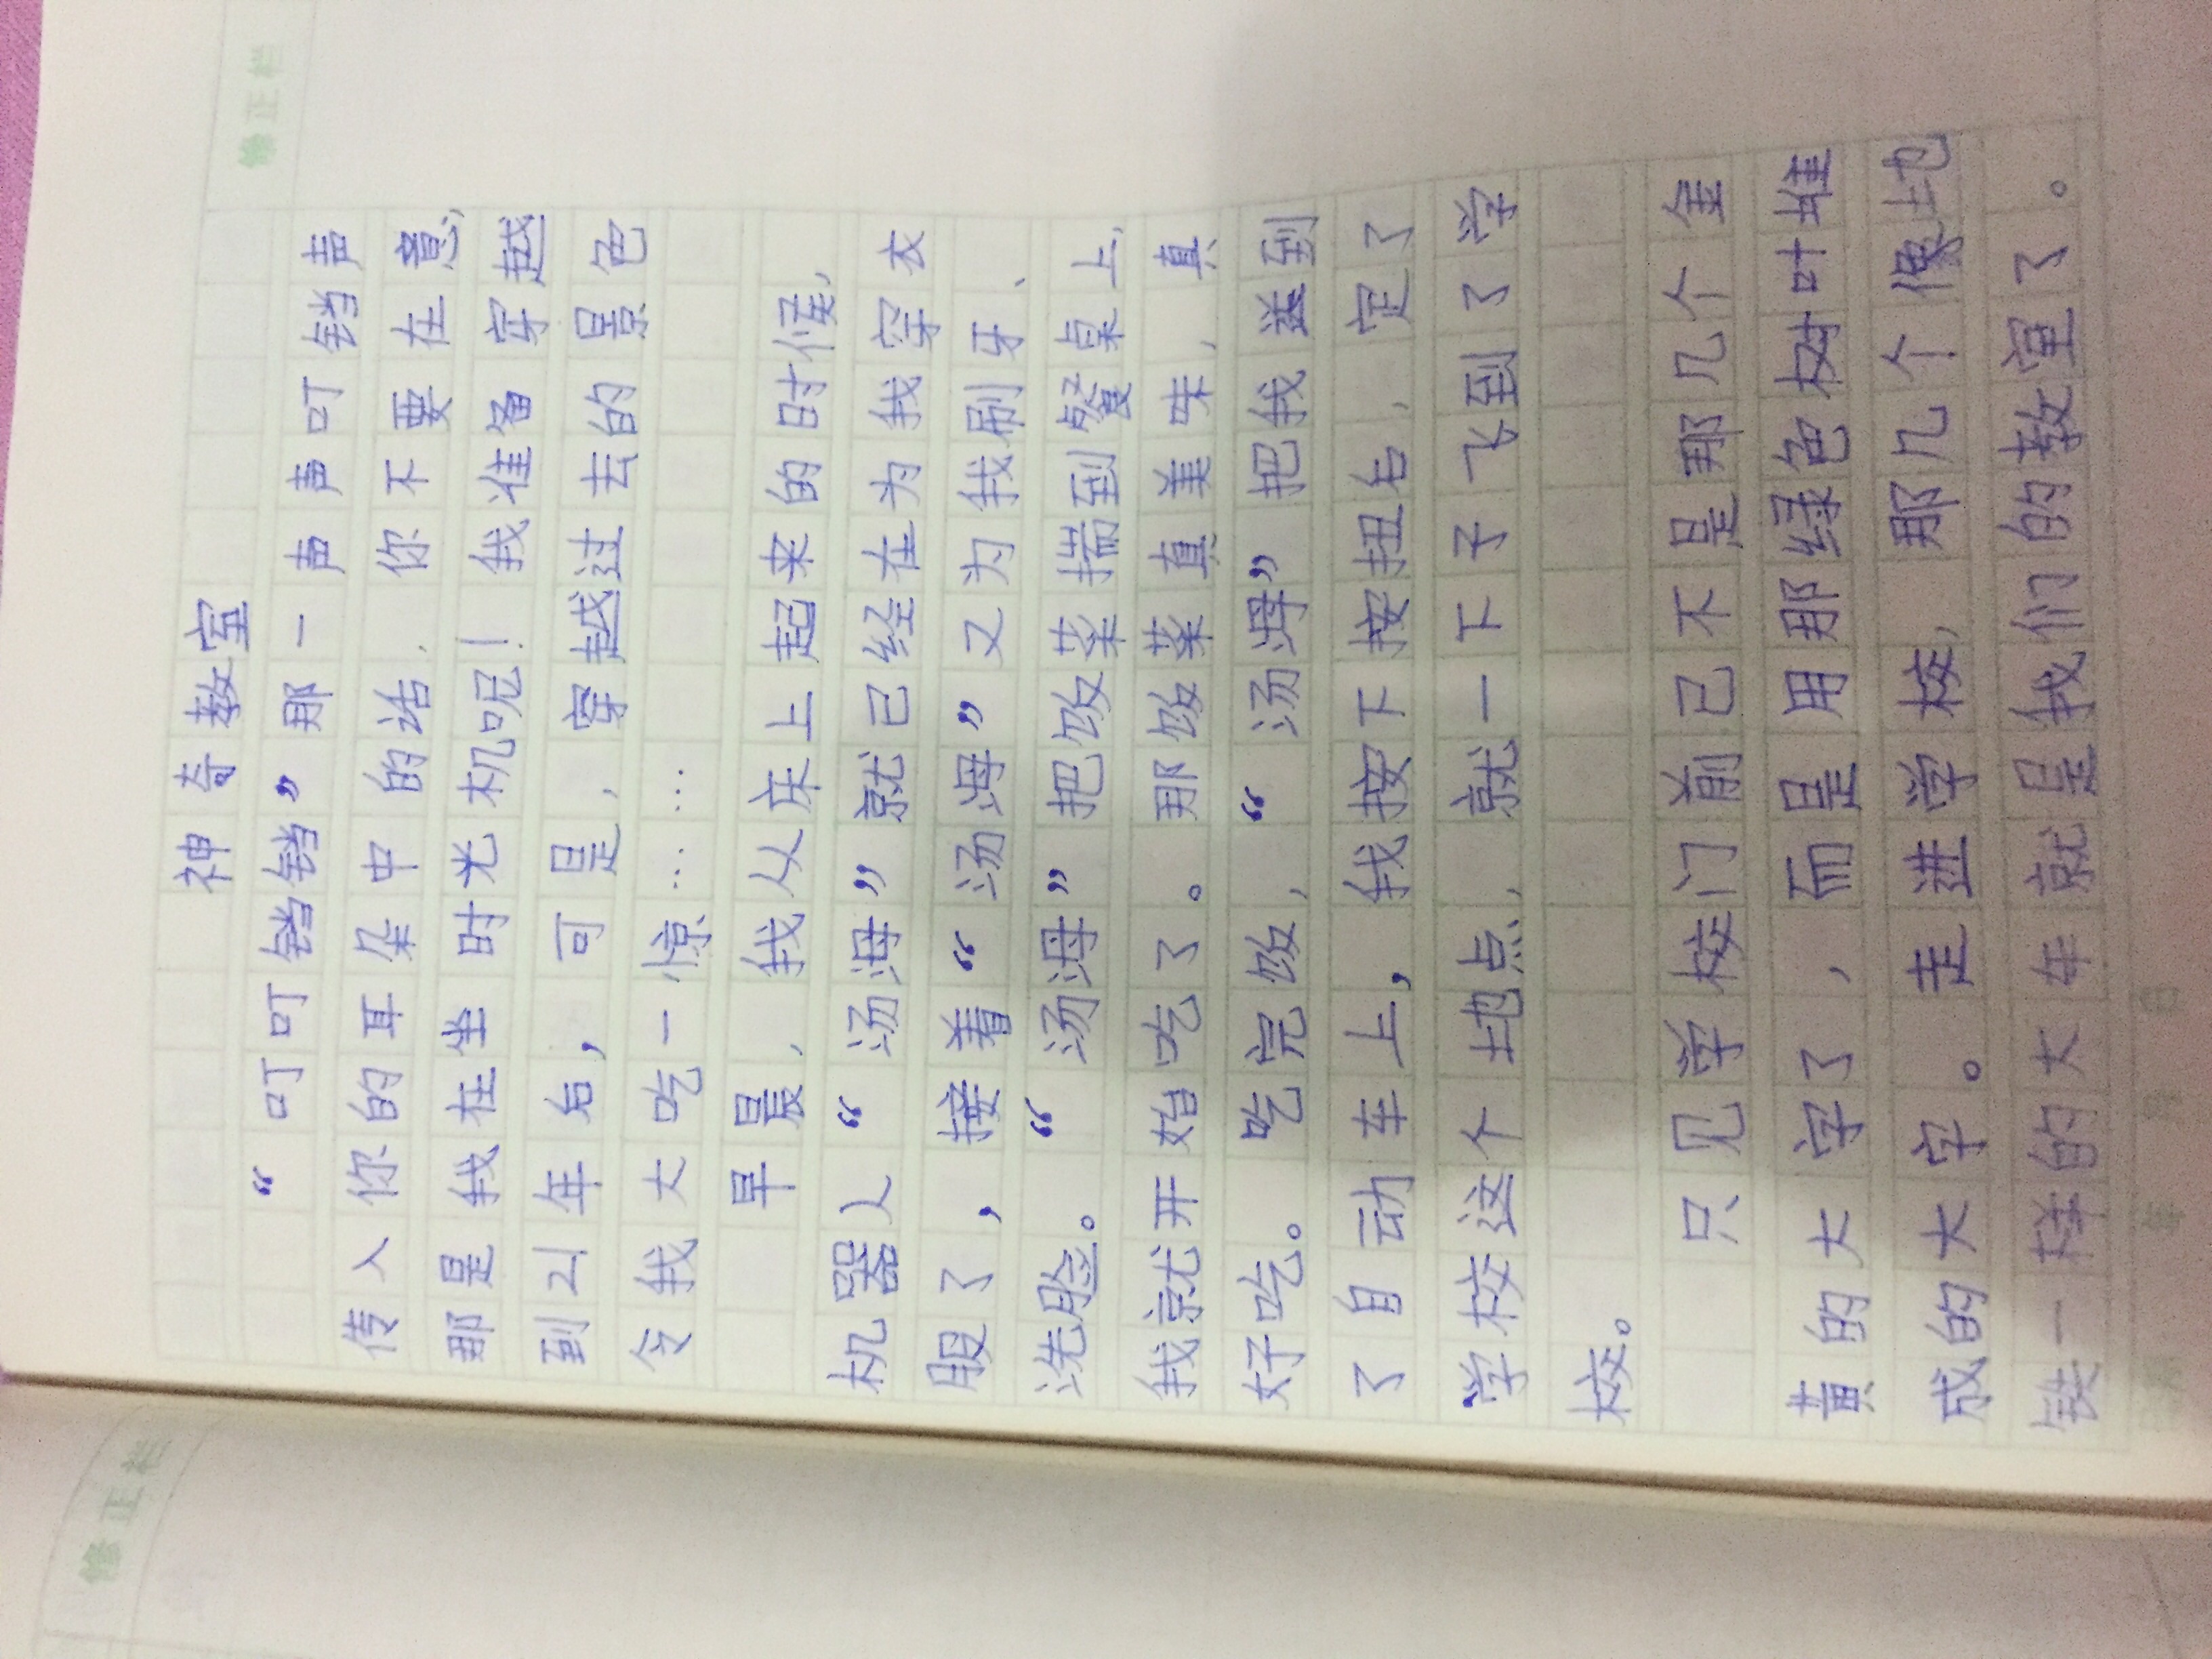 修正栏
神奇教室
“叮叮铛铛”那一声声叮铛声
传人你的耳朵中的话，你不要在意，
那是我在坐时光机呢！我准备穿越
到21年后，可是，穿越过去的景色
令我大吃一惊……
早晨，我从床上起来的时候，
机器人“汤海”就已经在为我穿衣
服了，接着“汤海”又为我刷牙、
洗脸。“汤海”把饭菜揣到餐桌上，
我就开始吃了。那饭菜真美味，真
好吃。吃完饭，“汤海”把我送到
了自动车上，我按下按扭后，定了
学校这个地点，就一下子飞到了学
校。
只见学校门前已不是那几个金
黄的大字了，而是用那绿色树叶堆
成的大字。走进学校，那几个像地
铁一样的大车就是我们的教室了。
修正栏